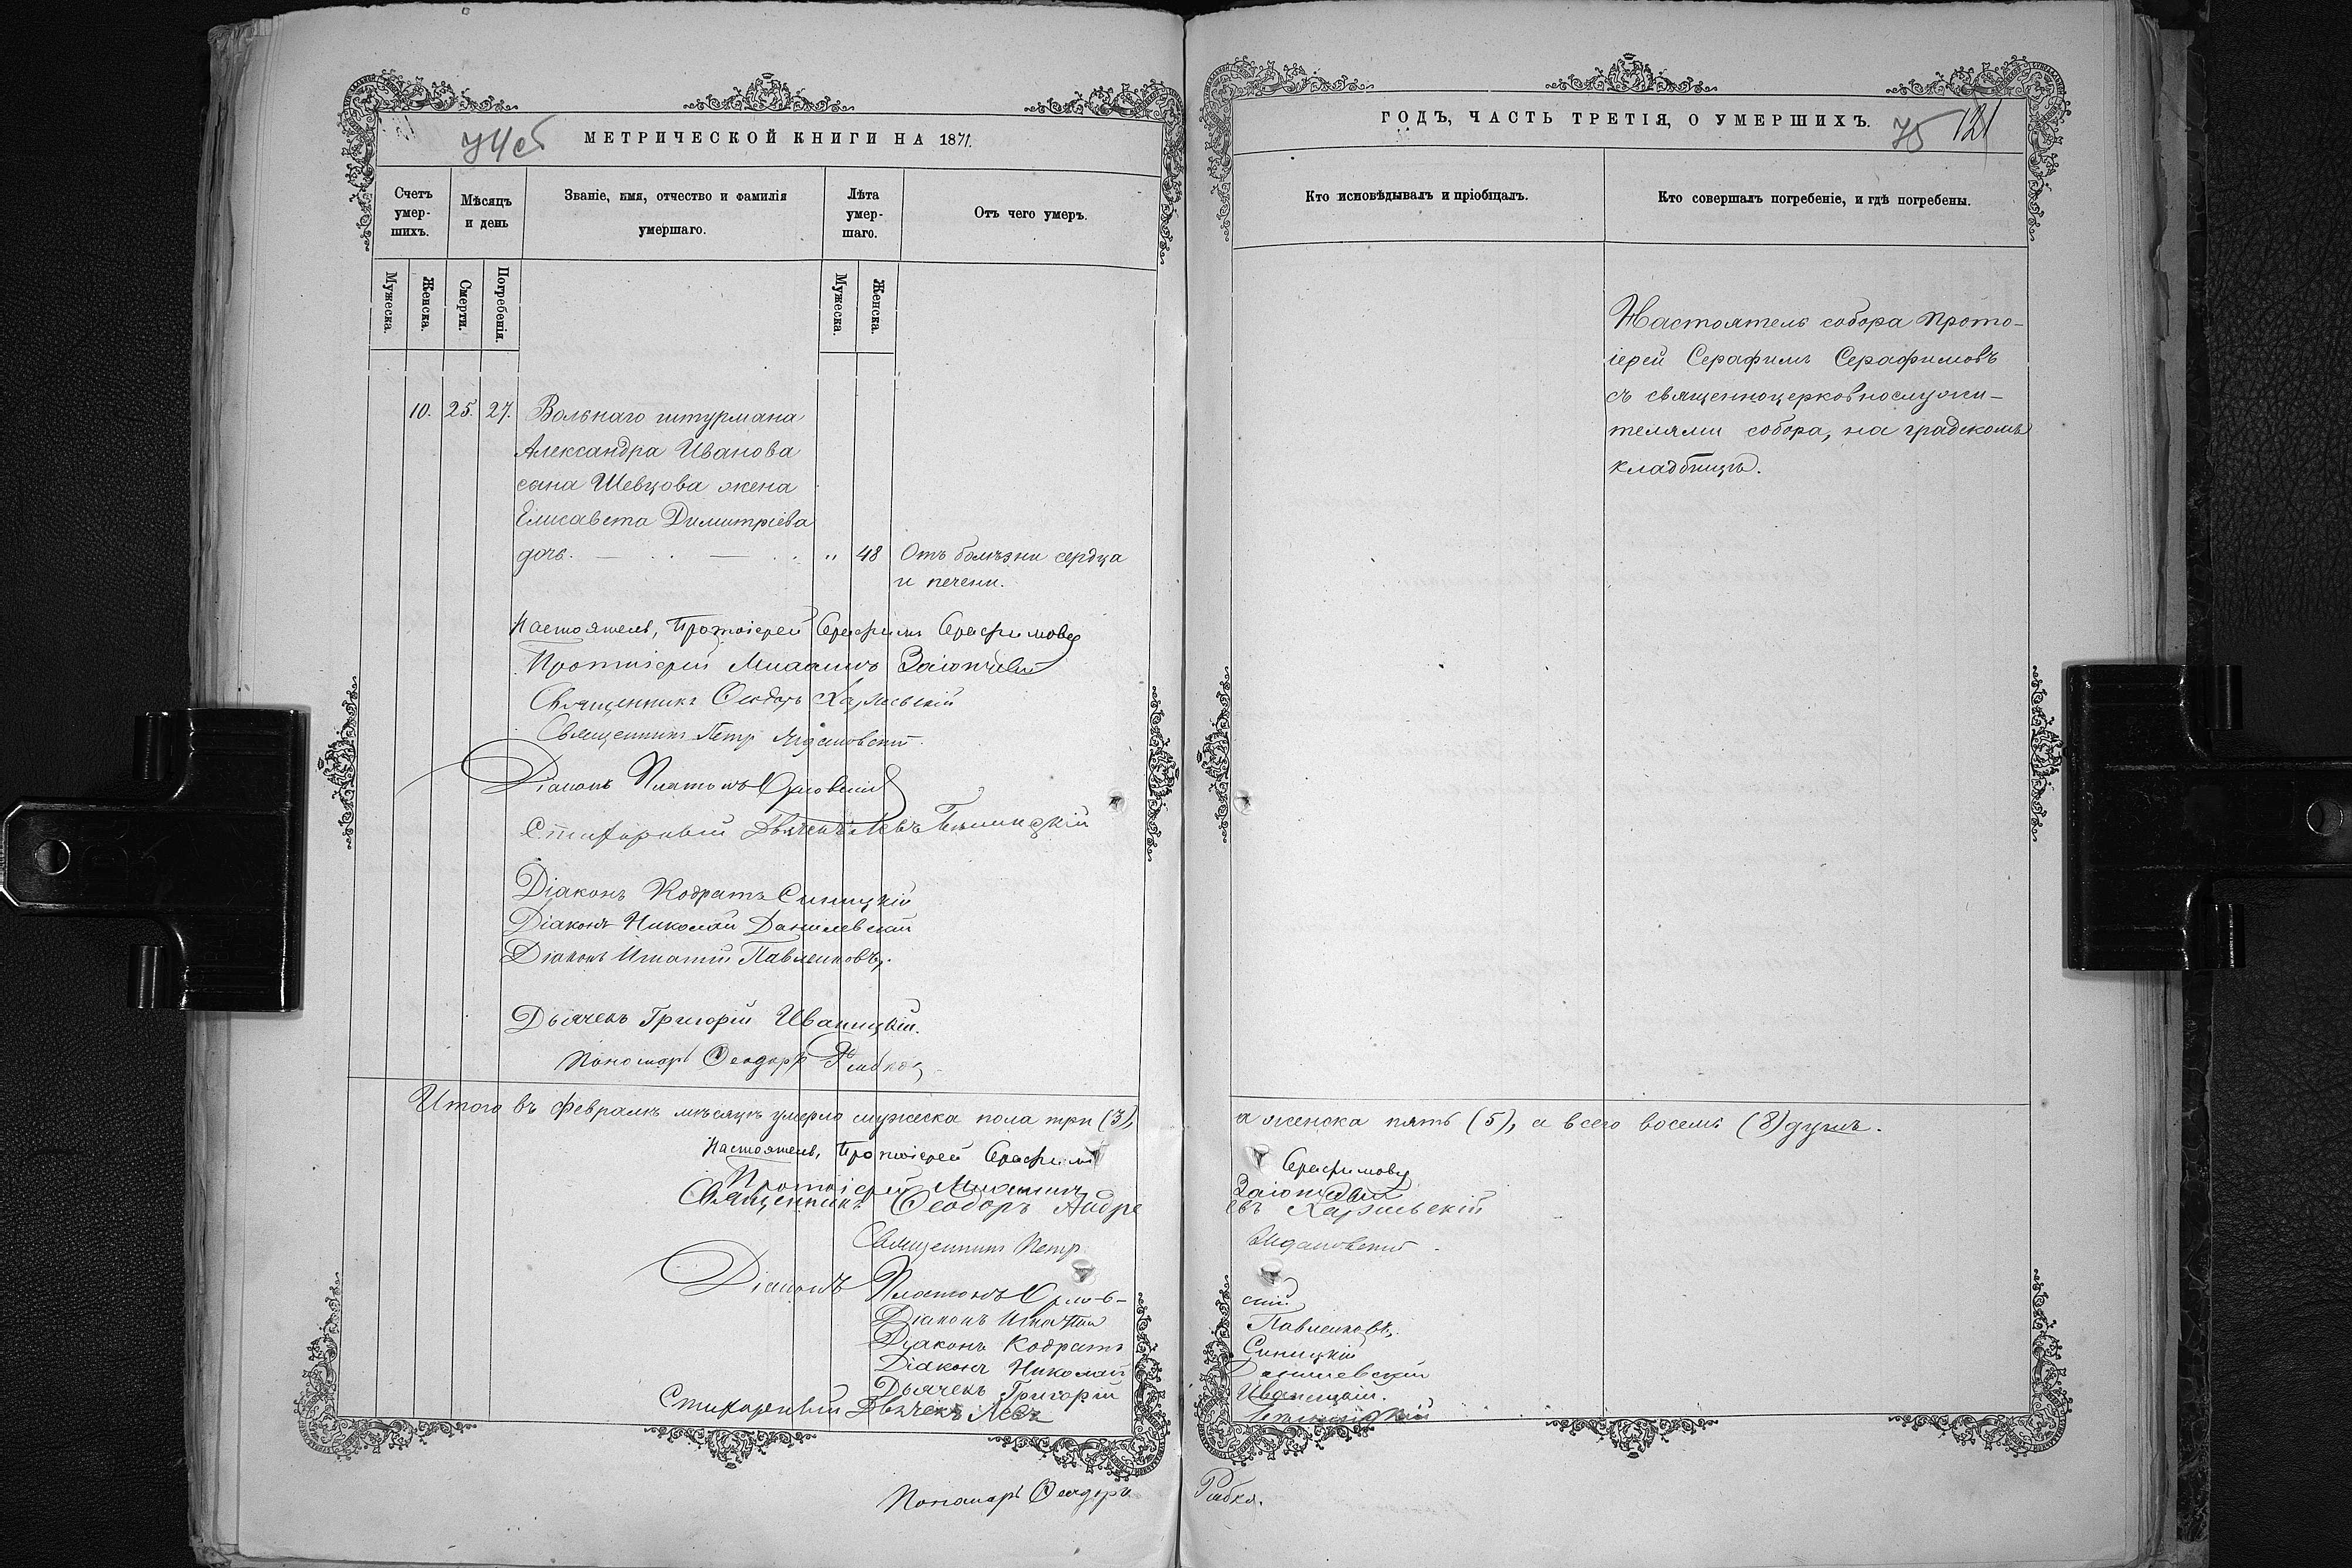 МЕТРИЧЕСКОЙ КНИГИ НА 1871.
Счетъ умер-шихъ.
Мѣсяцъ и день
Званіе, имя, отчество и фамилія умершаго.
Лѣта умер-шаго.
Отъ чего умеръ.
Мужеска.
Женска.
Смерти.
Погребенія.
Мужеска.
Женска.
10. 25. 27. Вольнаго штурмана
Александра Иванова
сына Шевцова жена
Елисавета Димитріева
дочь. — . . — . . „ 48 Отъ болѣзни сердца
и печени.
Настоятель, Протоіерей Серафимъ Серафимовъ
Протоіерей
Священникъ Ѳеодоръ
Священникъ Петр
Діаконъ Платонъ Орловскій
Стихарный Дьячекъ Левъ
Діаконъ Кодратъ Синицкій
Діаконъ Николай Данилевскій
Діаконъ Игнатій Павленковъ.
Дьячекъ Григорій Иваницкій.
Пономарь Ѳеодоръ
Итого въ Февралѣ мѣсяцѣ умерло мужеска пола три (3),
Настоятель, Протоіерей Серафимъ
Протоіерей
Священникъ Ѳеодоръ Андре
Священникъ Петр
Діаконъ Платонъ Орлов-
Діаконъ Игнатій
Діаконъ Кодратъ
Діаконъ Николай
Дьячекъ Григорій
Стихарный Дьячекъ Левъ
Пономарь Ѳеодоръ
ГОДЪ, ЧАСТЬ ТРЕТІЯ, О УМЕРШИХЪ.
75 121
Кто исповѣдывалъ и пріобщалъ.
Кто совершалъ погребеніе, и гдѣ погребены.
Настоятель собора Прото-
іерей Серафимъ Серафимовъ
съ священноцерковнослужи-
телями собора, на градскомъ
кладбищѣ.
а женска пять (5), а всего восемь (8) душъ.
Серафимовъ
евъ
скій
Павленковъ.
Синицкій
Данилевскій
Иваницкій.